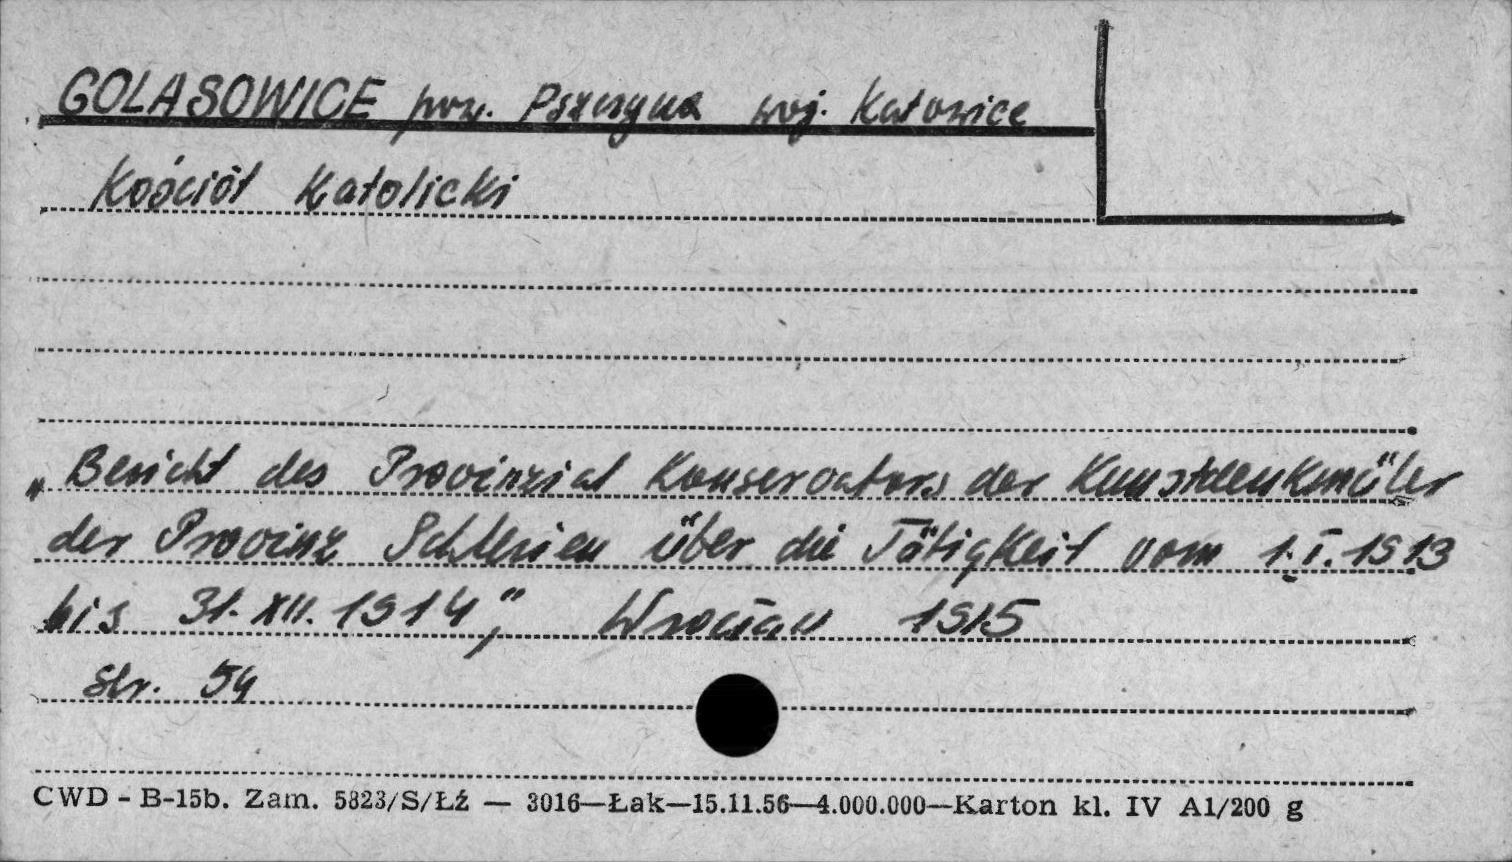 GOLASOWICE pow. Pszczyna woj. Katowice
Kościół Katolicki
„Bericht des Provinzial Konservators der Kunstdenkmäler
der Provinz Schlesien über die Tätigkeit vom 1.I.1913
bis 31.XII.1914", Wrocław 1915
Str. 54
CWD - B-15b. Zam. 5823/S/Łź — 3016—Łak—15.11.56—4.000.000—Karton kl. IV A1/200 g